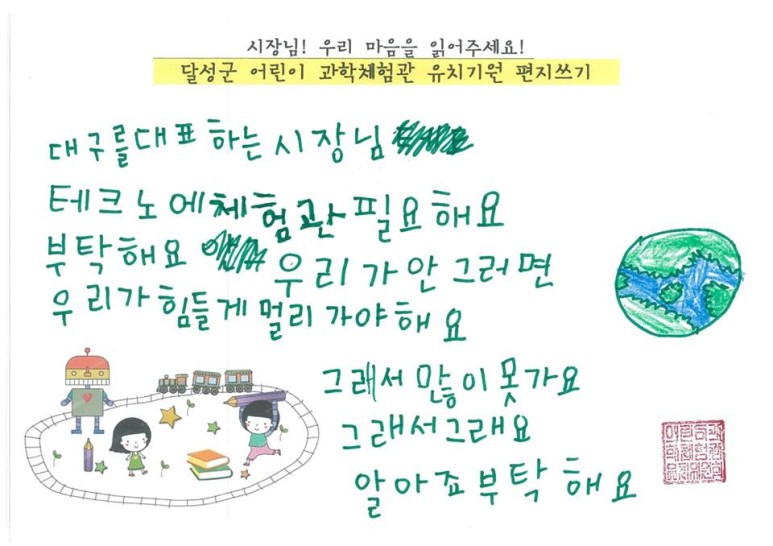 시장님! 우리 마음을 읽어주세요!
달성군 어린이 과학체험관 유치기원 편지쓰기
대구를대표하는시장님
테크노에체험관필요해요
부탁해요 우리가안그러면
우리가힘들게멀리가야해요
그래서많이못가요
그래서그래요
알아죠부탁해요